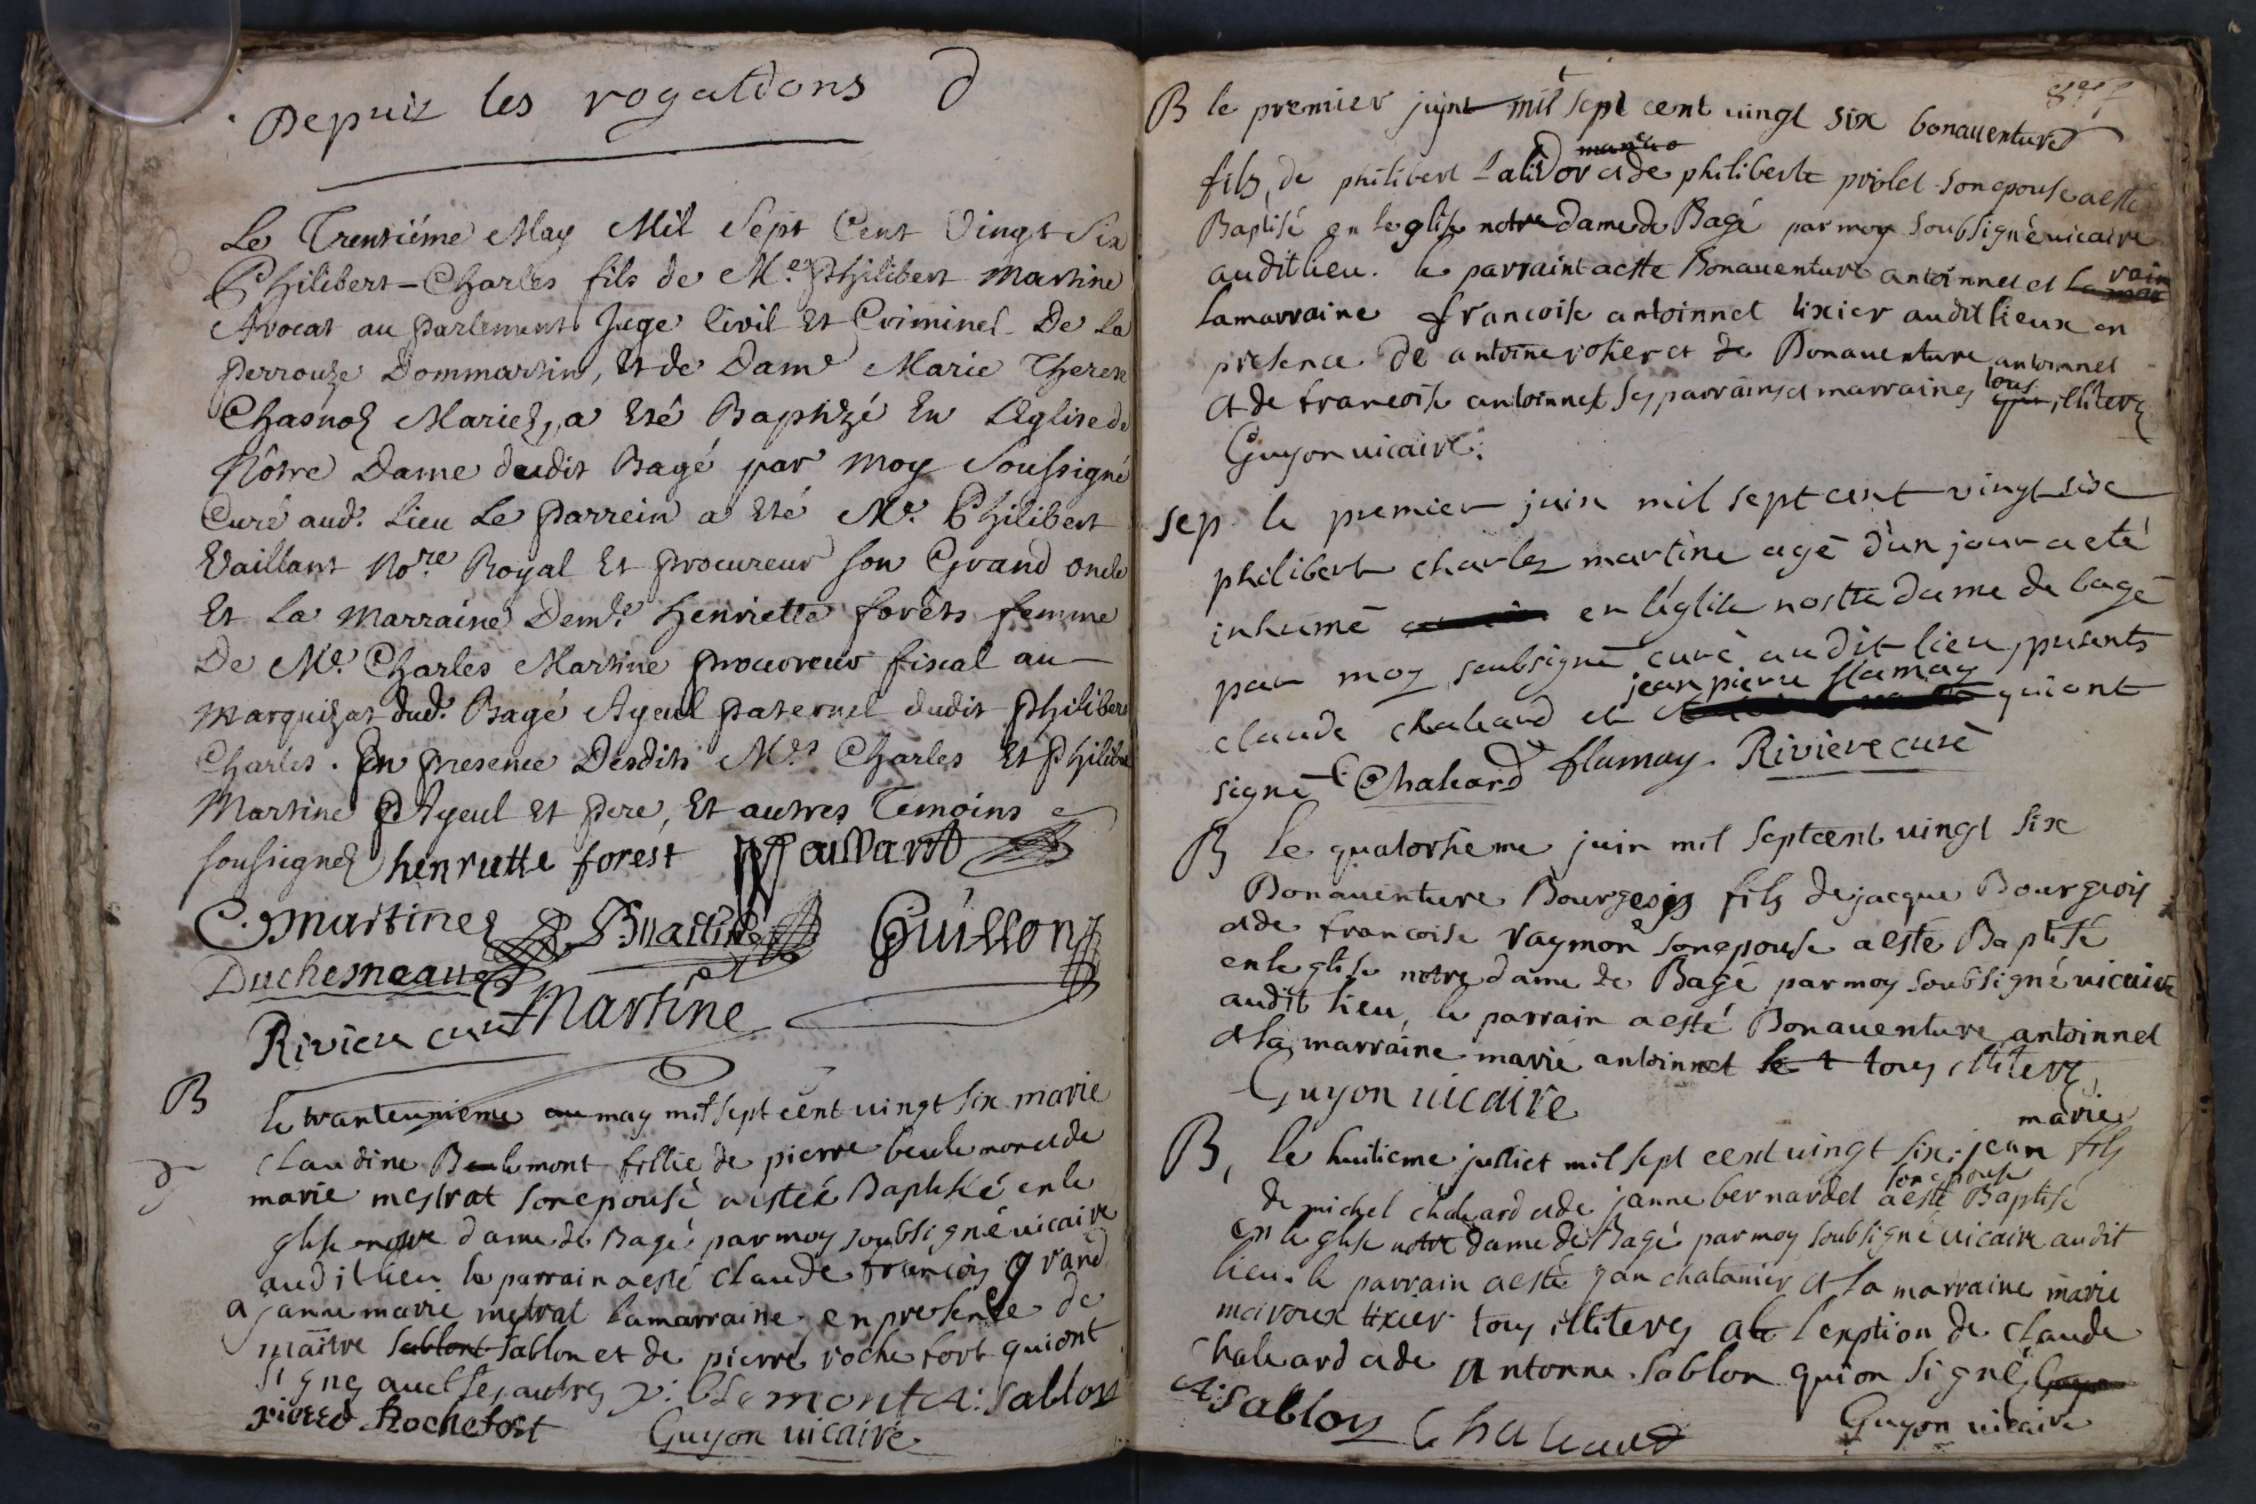 Depuis les rogations
Le Trentiéme May Mil Sept Cent Vingt Six
Philibert-Charles fils de Me. Philibert Martine
Avocat au Parlement Juge Civil Et Criminel De La
Perrouze Dommartin, Et de Dame Marie Therese
Chasnoz Mariez, a Eté Baptizé En L'Eglise de
Nôtre Dame dudit Bagé par moy Soussigné
Curé aud. Lieu Le Parrein a Eté Me. Philibert
Vaillant Nore. Royal Et Procureur son Grand oncle
Et La Marraine Demlle. Henriette forêts femme
De Me. Charles Martine procureur fiscal au
Marquizat dud. Bagé Ayeul Paternel dudit Philibert
Charles. En Presence Desdits Mes. Charles Et Philibert
Martine Ayeul Et Pere, Et autres Temoins
soussignez henriette forest Vaillant
C. martine P. Martine Guillon
Duchesneau
Riviere curé Martine
B le tranteunieme may mil sept cent uingt six marie
claudine Beulemont fillie de pierre beulemon et de
marie mestrat son epouse a esteé Baptisé en le
glise notre dame de Bagé par moy soubsigné uicaire
audit lieu le parrain a esté claude françois grand
a janne marie mestrat la marraine en presence de
maitre sablont sablon et de pierre rochefort qui ont
signes auec les autres p: blemont A: sablon
pierre Rochefort Guyon uicaire
B le premier juint mil sept cent uingt six bonauenture
fils de philibert Lalidor et de philiberte priolet son epouse a esté
Baptisé en le glise notre dame de Bagé par moy soubsigné uicaire
audit lieu. le parraint a este Bonauenture antoinnet et
la marraine francoise antoinnet tixier audit lieux en
presence de antoine rotier et de Bonauenture antoinnet
et de francoise antoinnet ses parrains et marraines tous illiteres
Guyon uicaire.
sep. le premier juin mil sept cent vingt six
philibert charles martine agé d'un jour a eté
inhumé en l'église nostre dame de bagé
par moy soubsigné curé audit lieu, presents
claude chaleard et jean pierre flamay qui ont
signé C. Chaleard flamay. Riviere curé
B Le quatorsieme juin mil sept cent uingt six
Bonauenture Bourgeois fils de jacque Bourgeois
et de francoise raymon son epouse a esté Baptisé
en le glise notre dame de Bagé par moy soubsigné uicaire
audit lieu, le parrain a esté Bonauenture antoinnet
et la marraine marie antoinnet tous illiteres
Guyon uicaire
B, le huitieme julliet mil sept cent uingt six jean marie fils
de michel chaleard et de janne bernardet son epouse a esté Baptisé
en le glise notre dame de Bagé par moy soubsigné uicaire audit
lieu. le parrain a esté jan chatanier et la marraine marie
maroux tixier tous illiteres a lexption de claude
chaleard et de antonne sablon qui on signé,
A: Sablon Chaleard Guyon uicaire